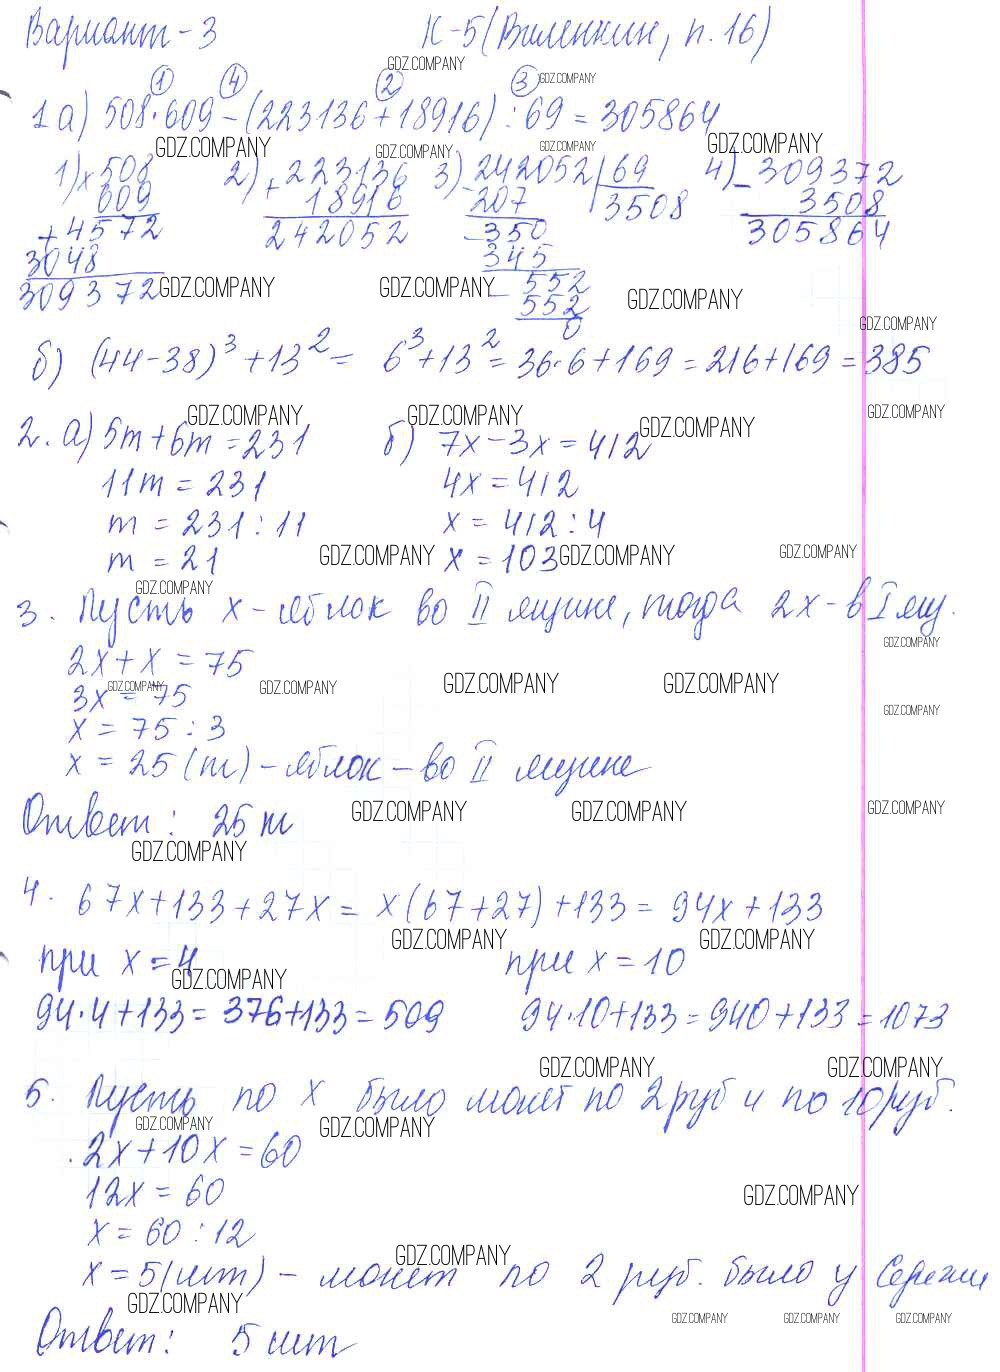 Вариант - 3 К-5 (Виленкин, п. 16)
GDZ.COMPANY
① ④ ② ③ GDZ.COMPANY
1 а) 508·609 - (223136 + 18916) : 69 = 305864
GDZ.COMPANY GDZ.COMPANY GDZ.COMPANY GDZ.COMPANY
1) × 508 2) + 223136 3) - 242052 | 69 4) - 309372
609 18916 207 3508 3508
+ 4572 242052 - 350 305864
3048 345
309372 - 552
GDZ.COMPANY GDZ.COMPANY GDZ.COMPANY
552
0
GDZ.COMPANY
б) (44-38)³ + 13² = 6³ + 13² = 36·6 + 169 = 216 + 169 = 385
GDZ.COMPANY GDZ.COMPANY GDZ.COMPANY GDZ.COMPANY
2. а) 5m + 6m = 231 б) 7x - 3x = 412
11m = 231 4x = 412
m = 231 : 11 x = 412 : 4
m = 21 x = 103
GDZ.COMPANY GDZ.COMPANY GDZ.COMPANY
GDZ.COMPANY
3. Пусть x - яблок во II ящике, тогда 2x - в I ящ.
GDZ.COMPANY
2x + x = 75
GDZ.COMPANY GDZ.COMPANY GDZ.COMPANY GDZ.COMPANY
3x = 75
GDZ.COMPANY
x = 75 : 3
x = 25 (т) - яблок - во II ящике
Ответ: 25 т
GDZ.COMPANY GDZ.COMPANY GDZ.COMPANY
GDZ.COMPANY
4. 67x + 133 + 27x = x(67 + 27) + 133 = 94x + 133
GDZ.COMPANY GDZ.COMPANY
при x = 4 при x = 10
GDZ.COMPANY
94·4 + 133 = 376 + 133 = 509 94·10 + 133 = 940 + 133 = 1073
GDZ.COMPANY GDZ.COMPANY
5. Пусть по x было монет по 2 руб и по 10 руб.
GDZ.COMPANY GDZ.COMPANY
2x + 10x = 60
12x = 60
GDZ.COMPANY
x = 60 : 12
GDZ.COMPANY
x = 5 (шт) - монет по 2 руб. было у Сережи
GDZ.COMPANY GDZ.COMPANY GDZ.COMPANY GDZ.COMPANY
Ответ: 5 шт